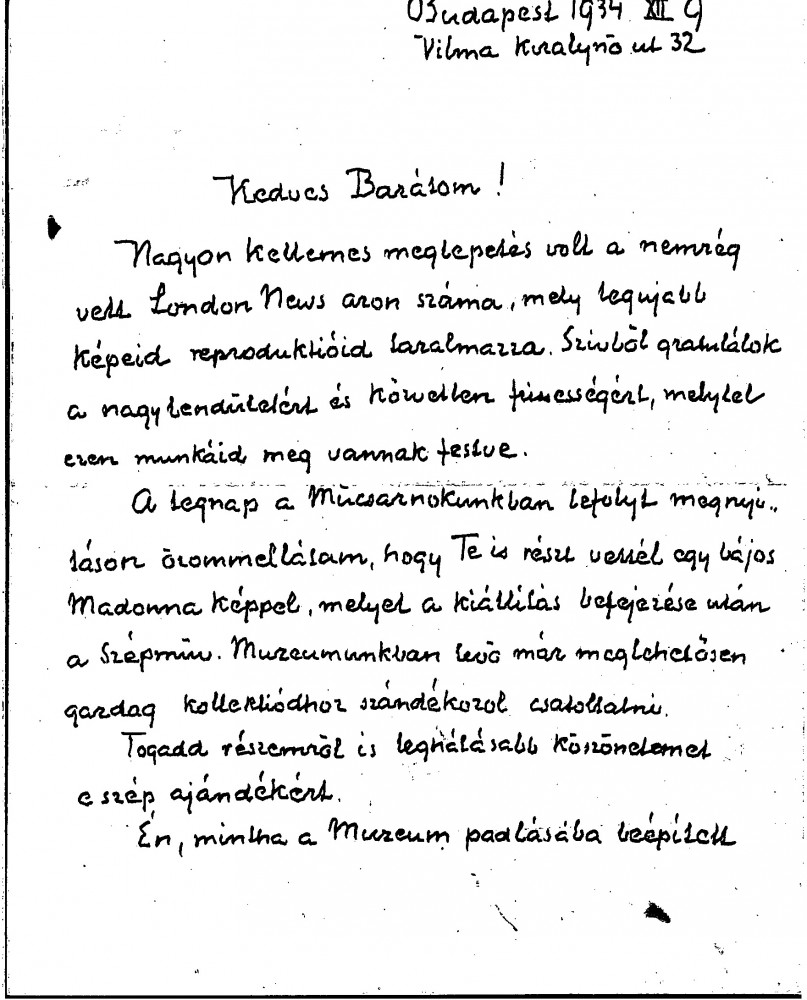 Budapest 1934 XII 9
Vilma Királynő ut 32
Kedves Barátom!
Nagyon kellemes meglepetés volt a nemrég
vett London News azon száma, mely legujabb
képeid reproduktióid taralmazza. Szivből gratulálok
a nagy lendületért és közvetlen finességért, melylyel
ezen munkáid meg vannak festve.
A tegnap a Műcsarnokunkban lefolyt megnyi-
táson örommel látam, hogy Te is részt vettél egy bájos
Madonna képpel, melyet a kiállitás befejezése után
a Szépmüv. Muzeumunkban levő már meglehetősen
gazdag kollektiódhoz szándékozol csatoltatni.
Fogadd részemről is leghálásabb köszönetemet
e szép ajándékért.
Én, mintha a Muzeum padlásába beépitett